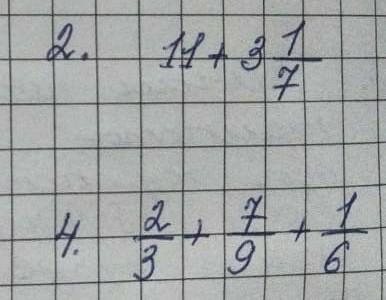 2. 11 + 3 1/7
4. 2/3 + 7/9 + 1/6